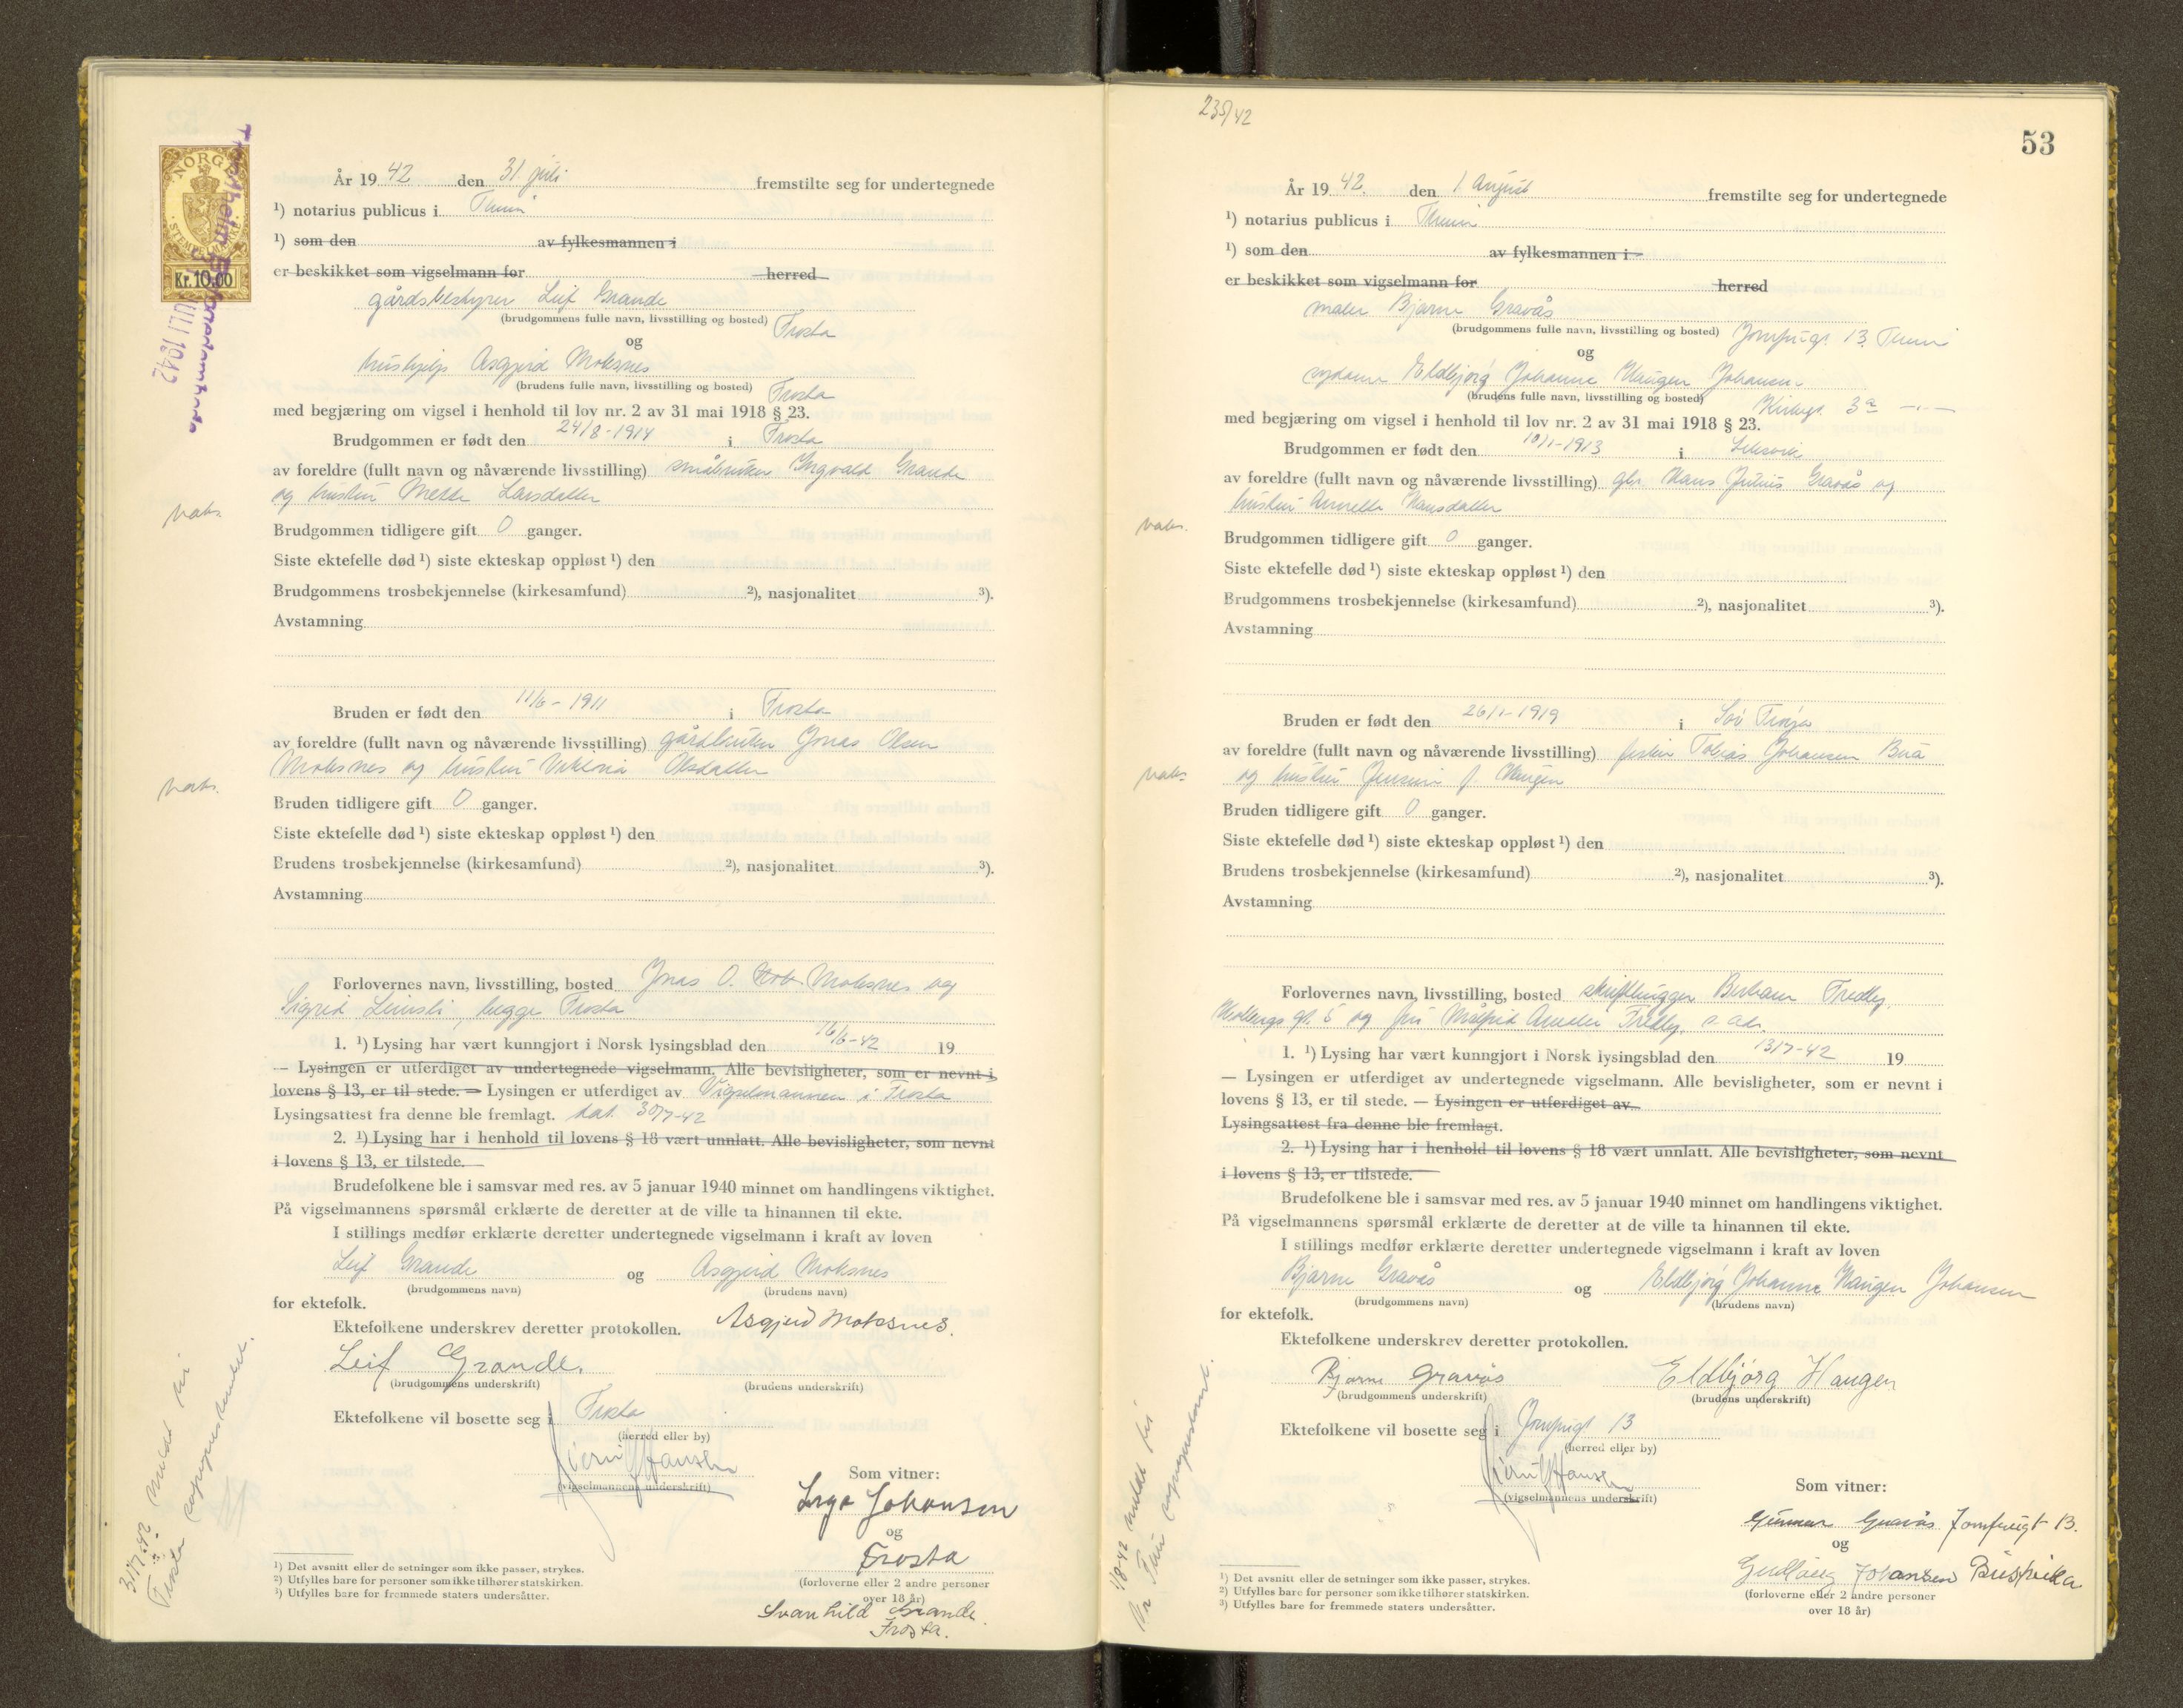 NORGE
STEMPELMERKE
Kr. 10.00
JULI 1942
År 1942 den 31 juli fremstilte seg for undertegnede
¹) notarius publicus i Thm
¹) som den av fylkesmannen i
er beskikket som vigselmann for herred
gårdsbestyrer Leif Grande
(brudgommens fulle navn, livsstilling og bosted) Frosta
og
hushjelp Asgjerd Moksnes
(brudens fulle navn, livsstilling og bosted) Frosta
med begjæring om vigsel i henhold til lov nr. 2 av 31 mai 1918 § 23.
Brudgommen er født den 24/8-1914 i Frosta
av foreldre (fullt navn og nåværende livsstilling) småbruker Ingvald Grande
og hustru Mette Larsdatter
vaks.
Brudgommen tidligere gift 0 ganger.
Siste ektefelle død ¹) siste ekteskap oppløst ¹) den
Brudgommens trosbekjennelse (kirkesamfund) ²), nasjonalitet ³).
Avstamning
Bruden er født den 11/6-1911 i Frosta
av foreldre (fullt navn og nåværende livsstilling) gårdbruker Jonas Olsen
Moksnes og hustru Viktoria Olsdatter
vaks.
Bruden tidligere gift 0 ganger.
Siste ektefelle død ¹) siste ekteskap oppløst ¹) den
Brudens trosbekjennelse (kirkesamfund) ²), nasjonalitet ³).
Avstamning
Forlovernes navn, livsstilling, bosted Jonas O. Moksnes og
Sigrid , begge Frosta
1. ¹) Lysing har vært kunngjort i Norsk lysingsblad den 16/6-42 19
— Lysingen er utferdiget av undertegnede vigselmann. Alle bevisligheter, som er nevnt i
lovens § 13, er til stede. — Lysingen er utferdiget av Vigselmannen i Frosta
Lysingsattest fra denne ble fremlagt. dat. 30/7-42
2. ¹) Lysing har i henhold til lovens § 18 vært unnlatt. Alle bevisligheter, som nevnt
i lovens § 13, er tilstede.
Brudefolkene ble i samsvar med res. av 5 januar 1940 minnet om handlingens viktighet.
På vigselmannens spørsmål erklærte de deretter at de ville ta hinannen til ekte.
I stillings medfør erklærte deretter undertegnede vigselmann i kraft av loven
Leif Grande og Asgjerd Moksnes
(brudgommens navn) (brudens navn)
for ektefolk.
Ektefolkene underskrev deretter protokollen. Asgjerd Moksnes.
Leif Grande.
(brudgommens underskrift) (brudens underskrift)
Ektefolkene vil bosette seg i Frosta
(herred eller by)
Hansen
(vigselmannens underskrift)
Som vitner:
Inga Johansen
og
Frosta
(forloverne eller 2 andre personer
over 18 år)
Svanhild Grande.
Frosta.
31/7-42 meldt til
Frosta sogneprestembet.
¹) Det avsnitt eller de setninger som ikke passer, strykes.
²) Utfylles bare for personer som ikke tilhører statskirken.
³) Utfylles bare for fremmede staters undersåtter.
235/42
53
År 1942. den 1 August fremstilte seg for undertegnede
¹) notarius publicus i Thm
¹) som den av fylkesmannen i
er beskikket som vigselmann for herred
maler Bjarne Gravås
(brudgommens fulle navn, livsstilling og bosted) Jomfrugt. 13. Thm
og
sydame Eldbjørg Johanne Haugen Johansen
(brudens fulle navn, livsstilling og bosted) Kirkegt. 3a —"—
med begjæring om vigsel i henhold til lov nr. 2 av 31 mai 1918 § 23.
Brudgommen er født den 10/1-1913 i Leksvik
av foreldre (fullt navn og nåværende livsstilling) gbr. Hans Julius Gravås og
hustru Annette Hansdatter
vaks.
Brudgommen tidligere gift 0 ganger.
Siste ektefelle død ¹) siste ekteskap oppløst ¹) den
Brudgommens trosbekjennelse (kirkesamfund) ²), nasjonalitet ³).
Avstamning
Bruden er født den 26/1-1919 i Sør Frøya
av foreldre (fullt navn og nåværende livsstilling) fisker Tobias Johansen Bua
og hustru J. Haugen
vaks.
Bruden tidligere gift 0 ganger.
Siste ektefelle død ¹) siste ekteskap oppløst ¹) den
Brudens trosbekjennelse (kirkesamfund) ²), nasjonalitet ³).
Avstamning
Forlovernes navn, livsstilling, bosted skrifthugger Fredly,
gt. 6 og fru Målfrid Amelie Fredly. s. adr.
1. ¹) Lysing har vært kunngjort i Norsk lysingsblad den 13/7-42 19
— Lysingen er utferdiget av undertegnede vigselmann. Alle bevisligheter, som er nevnt i
lovens § 13, er til stede. — Lysingen er utferdiget av
Lysingsattest fra denne ble fremlagt.
2. ¹) Lysing har i henhold til lovens § 18 vært unnlatt. Alle bevisligheter, som nevnt
i lovens § 13, er tilstede.
Brudefolkene ble i samsvar med res. av 5 januar 1940 minnet om handlingens viktighet.
På vigselmannens spørsmål erklærte de deretter at de ville ta hinannen til ekte.
I stillings medfør erklærte deretter undertegnede vigselmann i kraft av loven
Bjarne Gravås og Eldbjørg Johanne Haugen Johansen
(brudgommens navn) (brudens navn)
for ektefolk.
Ektefolkene underskrev deretter protokollen.
Bjarne Gravås Eldbjørg Haugen
(brudgommens underskrift) (brudens underskrift)
Ektefolkene vil bosette seg i Jomfrugt 13
(herred eller by)
Hansen
(vigselmannens underskrift)
Som vitner:
Gunnar Gravås Jomfrugt 13.
og
Gudlaug Johansen Buskvika
(forloverne eller 2 andre personer
over 18 år)
1/8-42 meldt til
Thm sogneprestemb.
¹) Det avsnitt eller de setninger som ikke passer, strykes.
²) Utfylles bare for personer som ikke tilhører statskirken.
³) Utfylles bare for fremmede staters undersåtter.